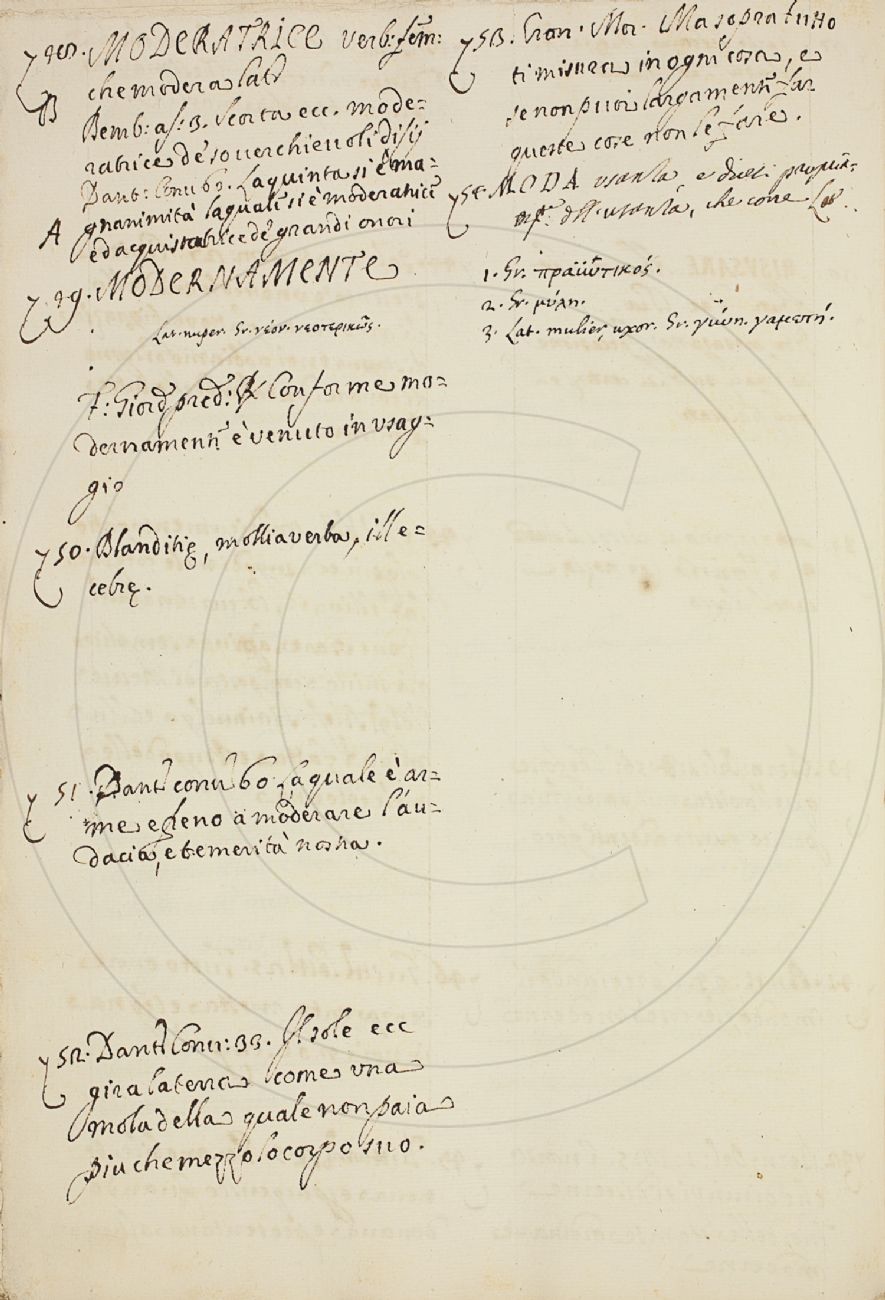 MODERATRICE verb: fem:
che modera Lat
B Bemb: as: 3. Scorta ecc. mode=
ratrice de soverchievoli disij
Dant: Conv: 63. La quinta si è ma=
gnanimità la quale si è moderatrice
A ed acquistatrice de grandi onori
49. MODERNAMENTE
Lat. nuper. Gr. νέον. νεοτερικῶς.
F: Giord: pred: Conforme mo=
dernament. è venuto in usag=
gio
50. Blanditię, mollia verba, ille=
cebrę.
51. Dant conv 60 La quale è ar=
me e freno a moderare l'au=
dacia, e temerità nostra.
52. Dant: Conv: 33. Il sole ecc
gira la terra come una
mola della quale non paia
piu che mezzo lo corpo suo.
53. Mor. Ma sopra tutto
ti misura in ogni cosa, e
se non puoi largament. far
queste cose non le fare.
MODA usanza e dicesi propria=
dell'usanza, che corre Lat.
1. Gr. πραϋντικός.
2. Gr. μύλη.
3. Lat. mulier, uxor. Gr. γύνη. γαμετή.